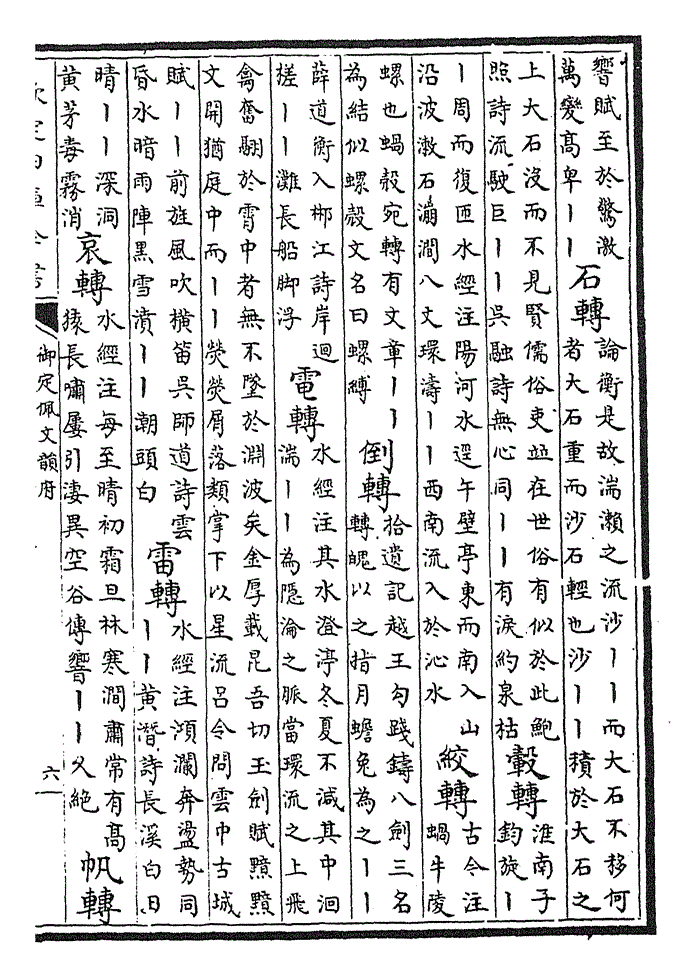 響賦至於驚激
萬變髙卑丨丨
石轉
論衡是故湍瀬之流沙丨丨而大石不移何
者大石重而沙石輕也沙丨丨積於大石之
上大石沒而不見賢儒俗吏竝在世俗有似於此鮑
照詩流駛巨丨丨吳融詩無心同丨丨有淚約泉枯
轂轉
淮南子
鈞旋丨
丨周而復匝水經注陽河水逕午壁亭東而南入山
沿波漱石漰澗八丈環濤丨丨西南流入於沁水
絞轉
古今注
蝸牛陵
螺也蝸殼宛轉有文章丨丨
為結似螺殼文名曰螺縛
倒轉
拾遺記越王勾踐鑄八劍三名
轉魄以之指月蟾兔為之丨丨
薛道衡入郴江詩岸迴
槎丨丨灘長船脚浮
電轉
水經注其水澄渟冬夏不減其中洄
湍丨丨為隱淪之脈當環流之上飛
禽奮翮於霄中者無不墜於淵波矣金厚載昆吾切玉劍賦黯黯
文開猶庭中而丨丨熒熒屑落類掌下以星流呂令問雲中古城
賦丨丨前旌風吹橫笛吳師道詩雲
昏水暗雨陣黑雪濆丨丨潮頭白
雷轉
水經注澒瀾奔盪勢同
丨丨黃潛詩長溪白日
晴丨丨深洞
黄茅毒霧消
哀轉
水經注每至晴初霜旦林寒澗肅常有髙
猿長嘯屢引淒異空谷傳響丨丨乆絶
帆轉
欽定四庫全書
御定佩文韻府
六